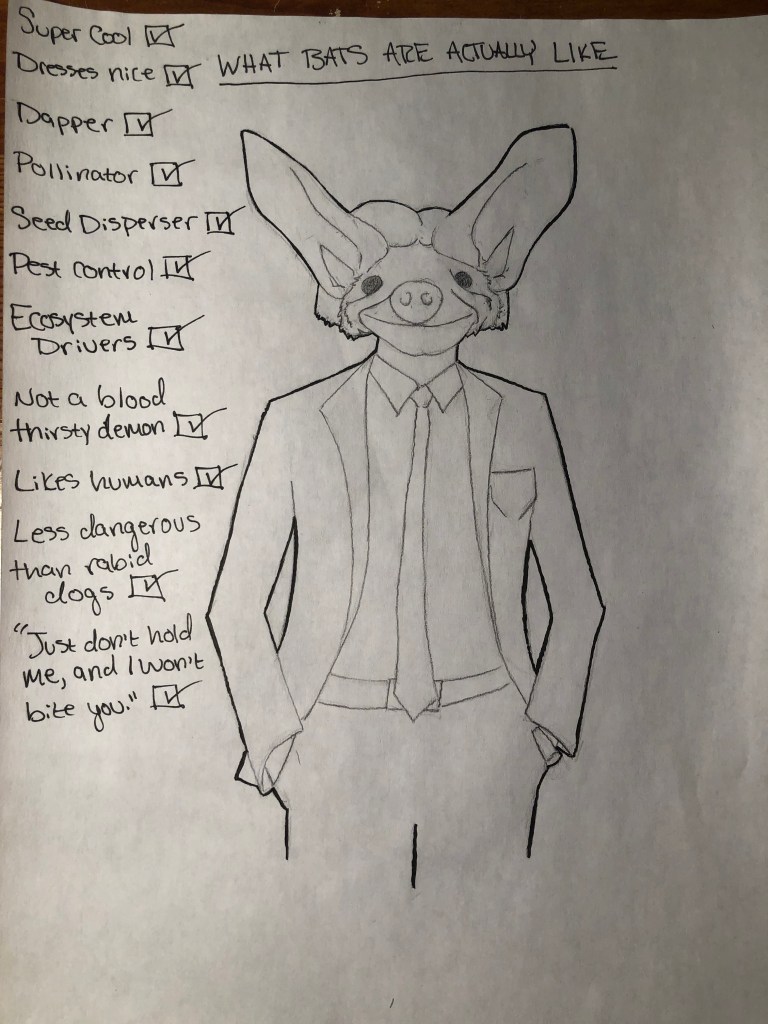 Super Cool
WHAT BATS ARE ACTUALLY LIKE
Dresses nice
Dapper
Pollinator
Seed Disperser
Pest control
Ecosystem
Drivers
Not a blood
thirsty demon
Likes humans
Less dangerous
than rabid
dogs
"Just don't hold
me, and I won't
bite you."